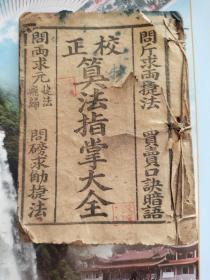 校正
問斤求兩捷法
買賣口訣暗語
算法指掌大全
問兩求元
捷法
問磅求觔捷法